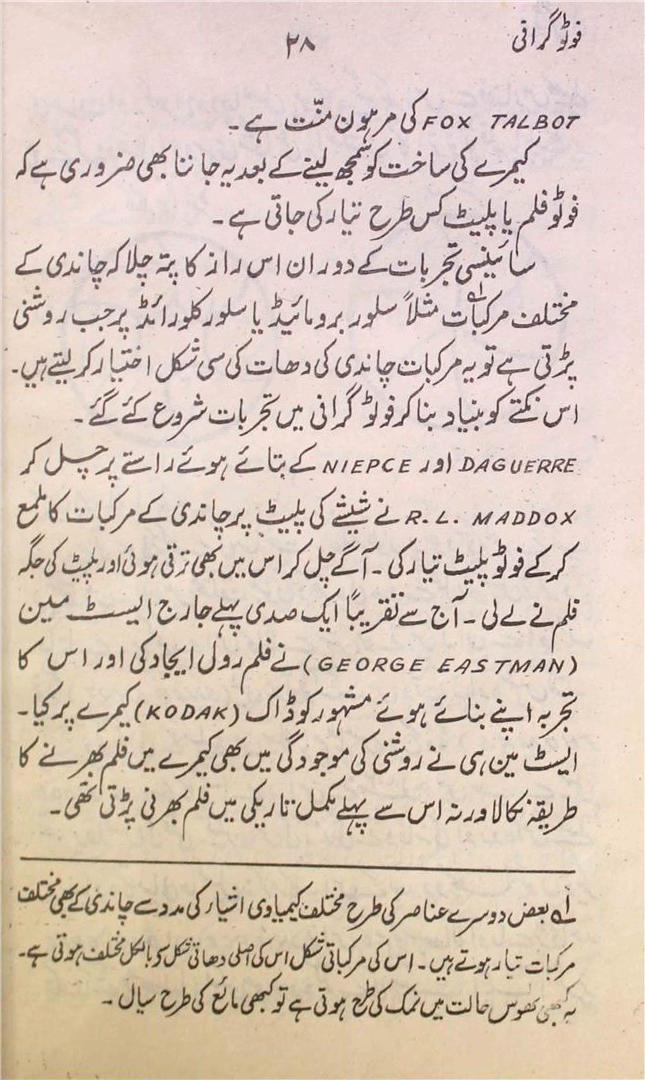 فوٹو گرافی
۲۸
FOX TALBOT کی مرہون منّت ہے۔
کیمرے کی ساخت کو سمجھ لینے کے بعد یہ جاننا بھی ضروری ہے کہ
فوٹو فلم یا پلیٹ کس طرح تیار کی جاتی ہے۔
سائینسی تجربات کے دوران اس راز کا پتہ چلا کہ چاندی کے
مختلف مرکبات لہ مثلاً سلور برومائیڈ یا سلور کلورائڈ پر جب روشنی
پڑتی ہے تو یہ مرکبات چاندی کی دھات کی سی شکل اختیار کر لیتے ہیں۔
اس نکتے کو بنیاد بنا کر فوٹو گرافی میں تجربات شروع کئے گئے۔
DAGUERRE اور NIEPCE کے بتائے ہوئے راستے پر چل کر
R.L. MADDOX نے شیشے کی پلیٹ پر چاندی کے مرکبات کا ملمع
کر کے فوٹو پلیٹ تیار کی۔ آگے چل کر اس میں بھی ترقی ہوئی اور پلیٹ کی جگہ
فلم نے لے لی۔ آج سے تقریباً ایک صدی پہلے جارج ایسٹ مین
(GEORGE EASTMAN) نے فلم رول ایجاد کی اور اس کا
تجربہ اپنے بنائے ہوئے مشہور کوڈاک (KODAK) کیمرے پر کیا۔
ایسٹ مین ہی نے روشنی کی موجودگی میں بھی کیمرے میں فلم بھرنے کا
طریقہ نکالا ورنہ اس سے پہلے مکمل تاریکی میں فلم بھرنی پڑتی تھی۔
لہ بعض دوسرے عناصر کی طرح مختلف کیمیاوی اشیار کی مدد سے چاندی کے بھی مختلف
مرکبات تیار ہوتے ہیں۔ اس کی مرکباتی شکل اس کی اصلی دھاتی شکل سے بالکل مختلف ہوتی ہے۔
یہ کبھی ٹھوس حالت میں نمک کی طرح ہوتی ہے تو کبھی مائع کی طرح سیال۔